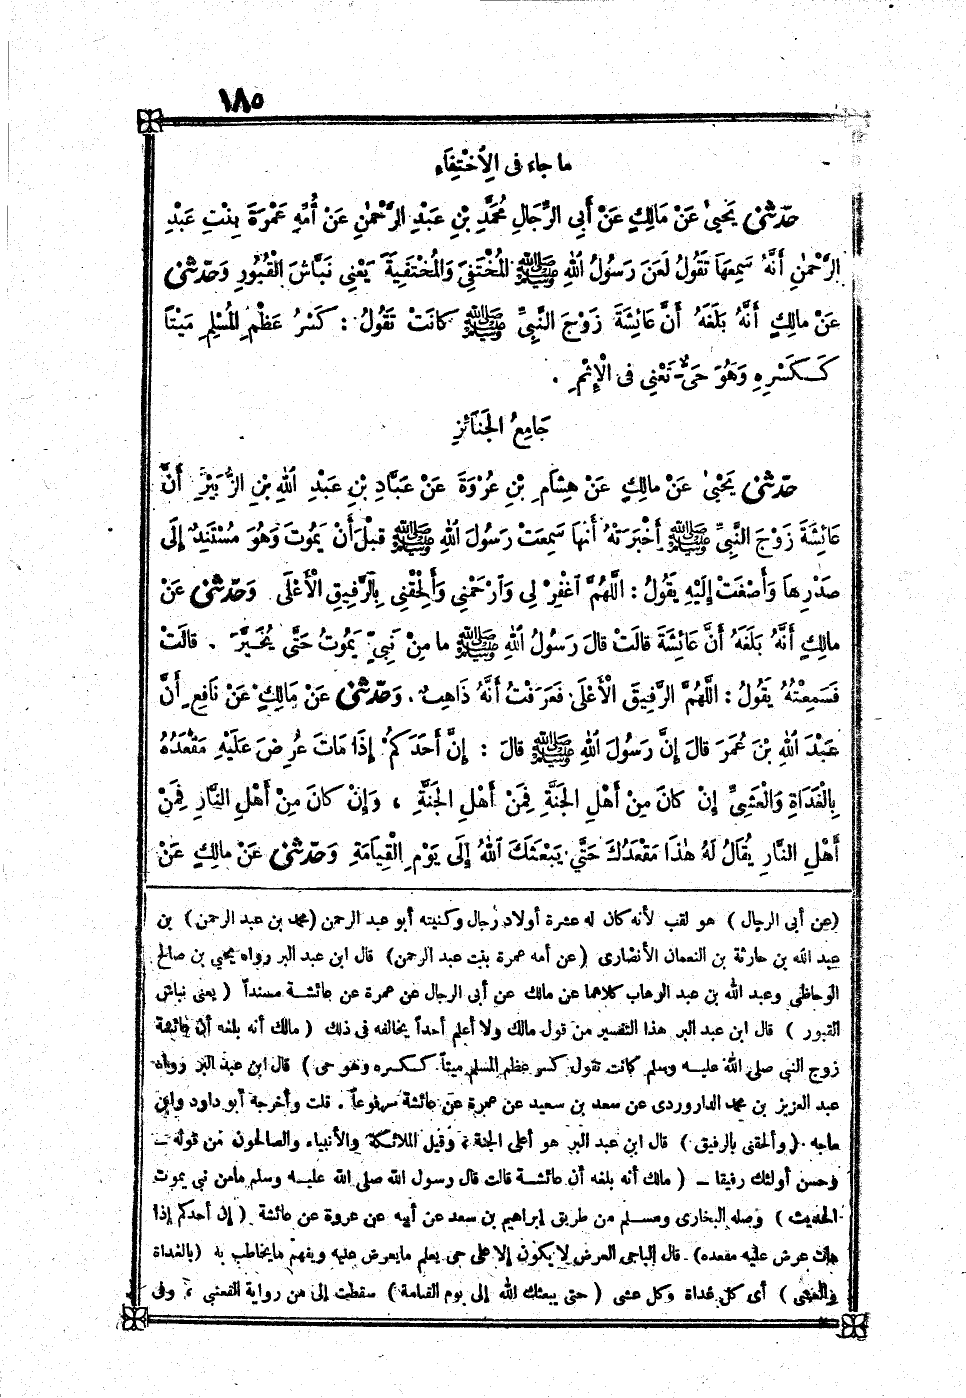 ١٨٥
ما جاء فى الِاخْتِفَاءِ
حدّثنى يَحْيَىٰ عَنْ مَالِكٍ عَنْ أَبِى الرِّجَالِ مُحَمَّدِ بْنِ عَبْدِ الرَّحْمٰنِ عَنْ أُمِّهِ عَمْرَةَ بِنْتِ عَبْدِ
الرَّحْمٰنِ أَنَّهُ سَمِعَهَا تَقُولُ لَعَنَ رَسُولُ اللهِ ﷺ المُخْتَفِىَ وَالْمُخْتَفِيَةَ يَعْنِى نَبَّاشَ الْقُبُورِ وَحَدّثنى
عَنْ مالِكٍ أَنَّهُ بَلَغَهُ أَنَّ عَائِشَةَ زَوْجَ النَّبِىِّ ﷺ كَانَتْ تَقُولُ : كَسْرُ عَظْمِ المُسْلِمِ مَيْتًا
كَكَسْرِهِ وَهُوَ حَىٌّ تَعْنِى فى الْإِثْمِ .
جَامِعُ الجَنَائزِ
حدّثنى يَحْيىٰ عَنْ مالِكٍ عَنْ هِشَامِ بْنِ عُرْوَةَ عَنْ عَبَّادِ بْنِ عَبْدِ اللهِ بْنِ الزُّبَيْرِ أَنَّ
عَائِشَةَ زَوْجَ النَّبِىِّ ﷺ أَخْبَرَتْهُ أَنهَا سَمِعَتْ رَسُولَ اللهِ ﷺ قَبْلَ أَنْ يَمُوتَ وَهُوَ مُسْتَنِدٌ إِلَى
صَدْرِهاَ وَأَصْغَتْ إِلَيْهِ يَقُولُ : اللَّهُمَّ اغْفِرْ لِى وَارْحَمْنِى وَأَلْحِقْنِى بِالرَّفِيقِ الْأَعْلَى . وَحَدّثنى عَنْ
مالِكٍ أَنَّهُ بَلَغَهُ أَنَّ عَائِشَةَ قالَتْ قَالَ رَسُولُ اللهِ ﷺ ما مِنْ نَبِىٍّ يَمُوتُ حَتَّى يُخَيَّرَ . قالَتْ
فَسَمِعْتُهُ يَقُولُ : اللَّهُمَّ الرَّفِيقَ الْأَعْلَى فَعَرَفْتُ أَنَّهُ ذَاهِبٌ . وَحَدّثنى عَنْ مَالِكٍ عَنْ نَافِعٍ أَنَّ
عَبْدَ اللهِ بْنَ عُمَرَ قالَ إِنَّ رَسُولَ اللهِ ﷺ قالَ : إِنَّ أَحَدَكُمْ إِذَا مَاتَ عُرِضَ عَلَيْهِ مَقْعَدُهُ
بِالْغَدَاةِ وَالْعَشِىِّ إِنْ كَانَ مِنْ أَهْلِ الجَنَّةِ فَمِنْ أَهْلِ الجَنَّةِ ، وَإِنْ كَانَ مِنْ أَهْلِ النَّارِ فَمِنْ
أَهْلِ النَّارِ يُقَالُ لَهُ هٰذَا مَقْعَدُكَ حَتَّى يَبْعَثَكَ اللهُ إِلَى يَوْمِ الْقِيَامَةِ وَحَدّثنى عَنْ مالِكٍ عَنْ
(عن أبى الرجال) هو لقب لأنه كان له عشرة أولاد رجال وكنيته أبو عبد الرحمن (محمد بن عبد الرحمن) بن
عبد الله بن حارثة بن النعمان الأنصارى (عن أمه عمرة بنت عبد الرحمن) قال ابن عبد البر رواه يحيى بن صالح
الوحاظى وعبد الله بن عبد الوهاب كلاهما عن مالك عن أبى الرجال عن عمرة عن عائشة مسنداً (يعنى نباش
القبور) قال ابن عبد البر هذا التفسير من قول مالك ولا أعلم أحداً يخالفه فى ذلك (مالك أنه بلغه أن عائشة
زوج النبى صلى الله عليه وسلم كانت تقول كسر عظم المسلم ميتاً ككسره وهو حى) قال ابن عبد البر رواه
عبد العزيز بن محمد الداروردى عن سعد بن سعيد عن عمرة عن عائشة مرفوعاً . قلت وأخرجه أبو داود وابن
ماجه (وألحقنى بالرفيق) قال ابن عبد البر هو أعلى الجنة وقيل الملائكة والأنبياء والصالحون من قوله ــ
وحسن أولئك رفيقا ــ (مالك أنه بلغه أن عائشة قالت قال رسول الله صلى الله عليه وسلم مامن نبى يموت
الحديث) وصله البخارى ومسلم من طريق إبراهيم بن سعد عن أبيه عن عروة عن عائشة (إن أحدكم إذا
مات عرض عليه مقعده) قال الباجى العرض لا يكون إلا على حى يعلم مايعرض عليه ويفهم مايخاطب به (بالغداة
والعشى) أى كل غداة وكل عشى (حتى يبعثك الله إلى يوم القيامة) سقطت إلى من رواية القعنبى ، وفى